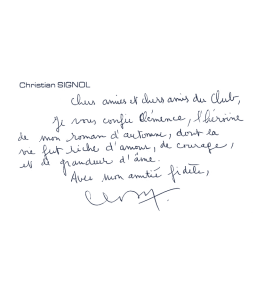 Christian SIGNOL
Chers amies et chers amis du Club,
Je vous confie Clémence, l'héroïne
de mon roman d'automne, dont la
vie fut riche d'amour, de courage,
et de grandeur d'âme.
Avec mon amitié fidèle,